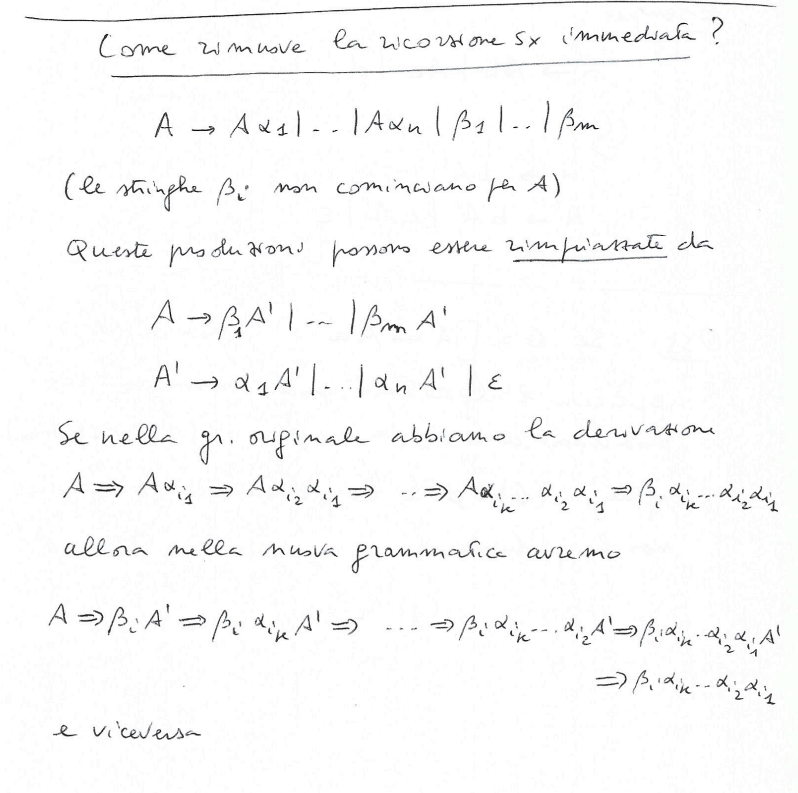 Come rimuove la ricorsione sx immediata?
A → Aα1 | .. | Aαn | β1 | .. | βm
(le stringhe βi non cominciano per A)
Queste produzioni possono essere rimpiazzate da
A → β1A' | ... | βm A'
A' → α1A' | ... | αn A' | ε
Se nella gr. originale abbiamo la derivazione
A ⇒ Aαi1 ⇒ Aαi2 αi1 ⇒ .. ⇒ Aαik ... αi2 αi1 ⇒ βi αik ... αi2 αi1
allora nella nuova grammatica avremo
A ⇒ βi A' ⇒ βi αik A' ⇒ ... ⇒ βi αik ... αi2 A' ⇒ βi αik .. αi2 αi1 A'
⇒ βi αik .. αi2 αi1
e viceversa